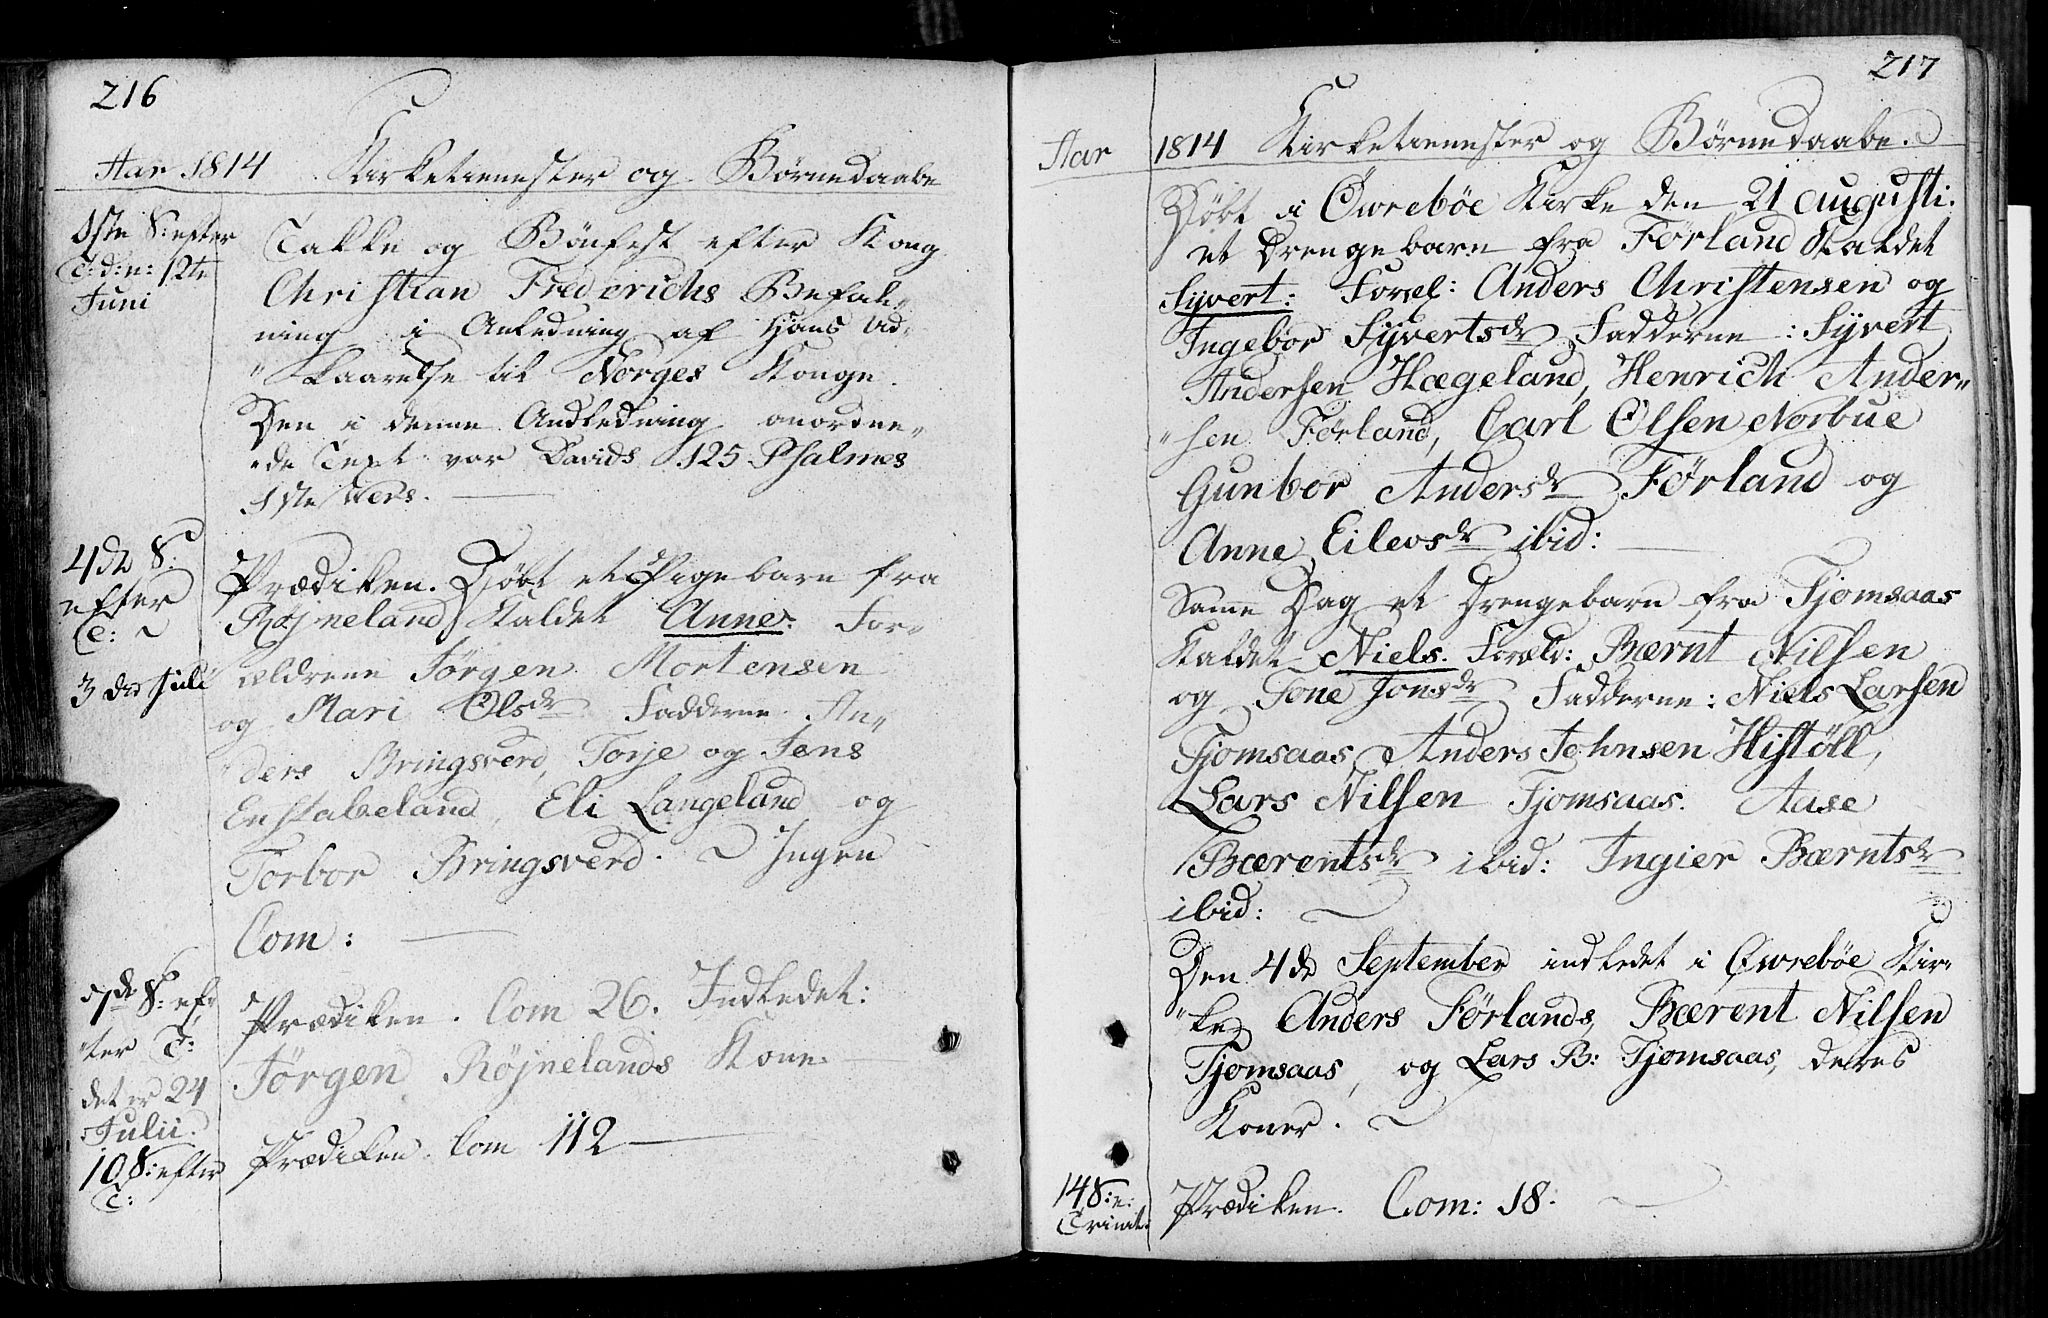 216
Aar 1814 Kirketienester og Børnedaabe
1ste S: efter
T: d: n: 12te
Juni
Takke og Bönfest efter Kong
Christian Frederichs Befal-
ning i Anledning af Hans Ud-
"kaarelse til Norges Konge.
Den i denne Andledning anordne-
"de Text var Davids 125 Psalmes
1ste Vers.
4de S:
efter
T:
3 die Juli
Prædiken. Døbt et Pigebarn fra
Røjneland kaldet Anne: For-
ældrene Jörgen Mortensen
og Mari Olsdr Fadderne An-
"ders Bringsverd, Torje og Jens
Enstabeland, Eli Langeland og
Torbor Bringsverd. Ingen
Com:
7de S: ef-
"ter T:
det er 24
Julii.
Prædiken. Com 26. Indledet:
Jörgen Röjnelands Kone.
10 S: efter
T:
Prædiken. Com 112
217
Aar 1814 Kirketienester og Börnedaabe.
Döbt i Øwreböe Kirke den 21 Augusti.
et Drengebarn fra Förland kaldet
Syvert: Foræl: Anders Christensen og
Ingebor Syvertsdr Fadderne: Syvert
Andersen Hægeland, Henrich Ander-
"sen Förland, Carl Olsen Norbue
Gunbor Andersdr Førland og
Anne Eilevsdr ibid:
Samme Dag et Drengebarn fra Tjomsaas
kaldet Niels. Foræld: Bærnt Nilsen
og Tone Jonsdr Fadderne: Niels Larsen
Tjomsaas, Anders Johnsen Histöll,
Lars Nilsen Tjomsaas. Aase
Bærentsdr ibid: Ingier Bærntsdr
ibid:
Den 4de September indledet i Øwreböe Kir-
"ke Anders Förlands, Bærent Nilsen
Tjomsaas, og Lars B: Tjomsaas, deres
Koner.
14 S: e:
Trinit:
Prædiken. Com: 18: